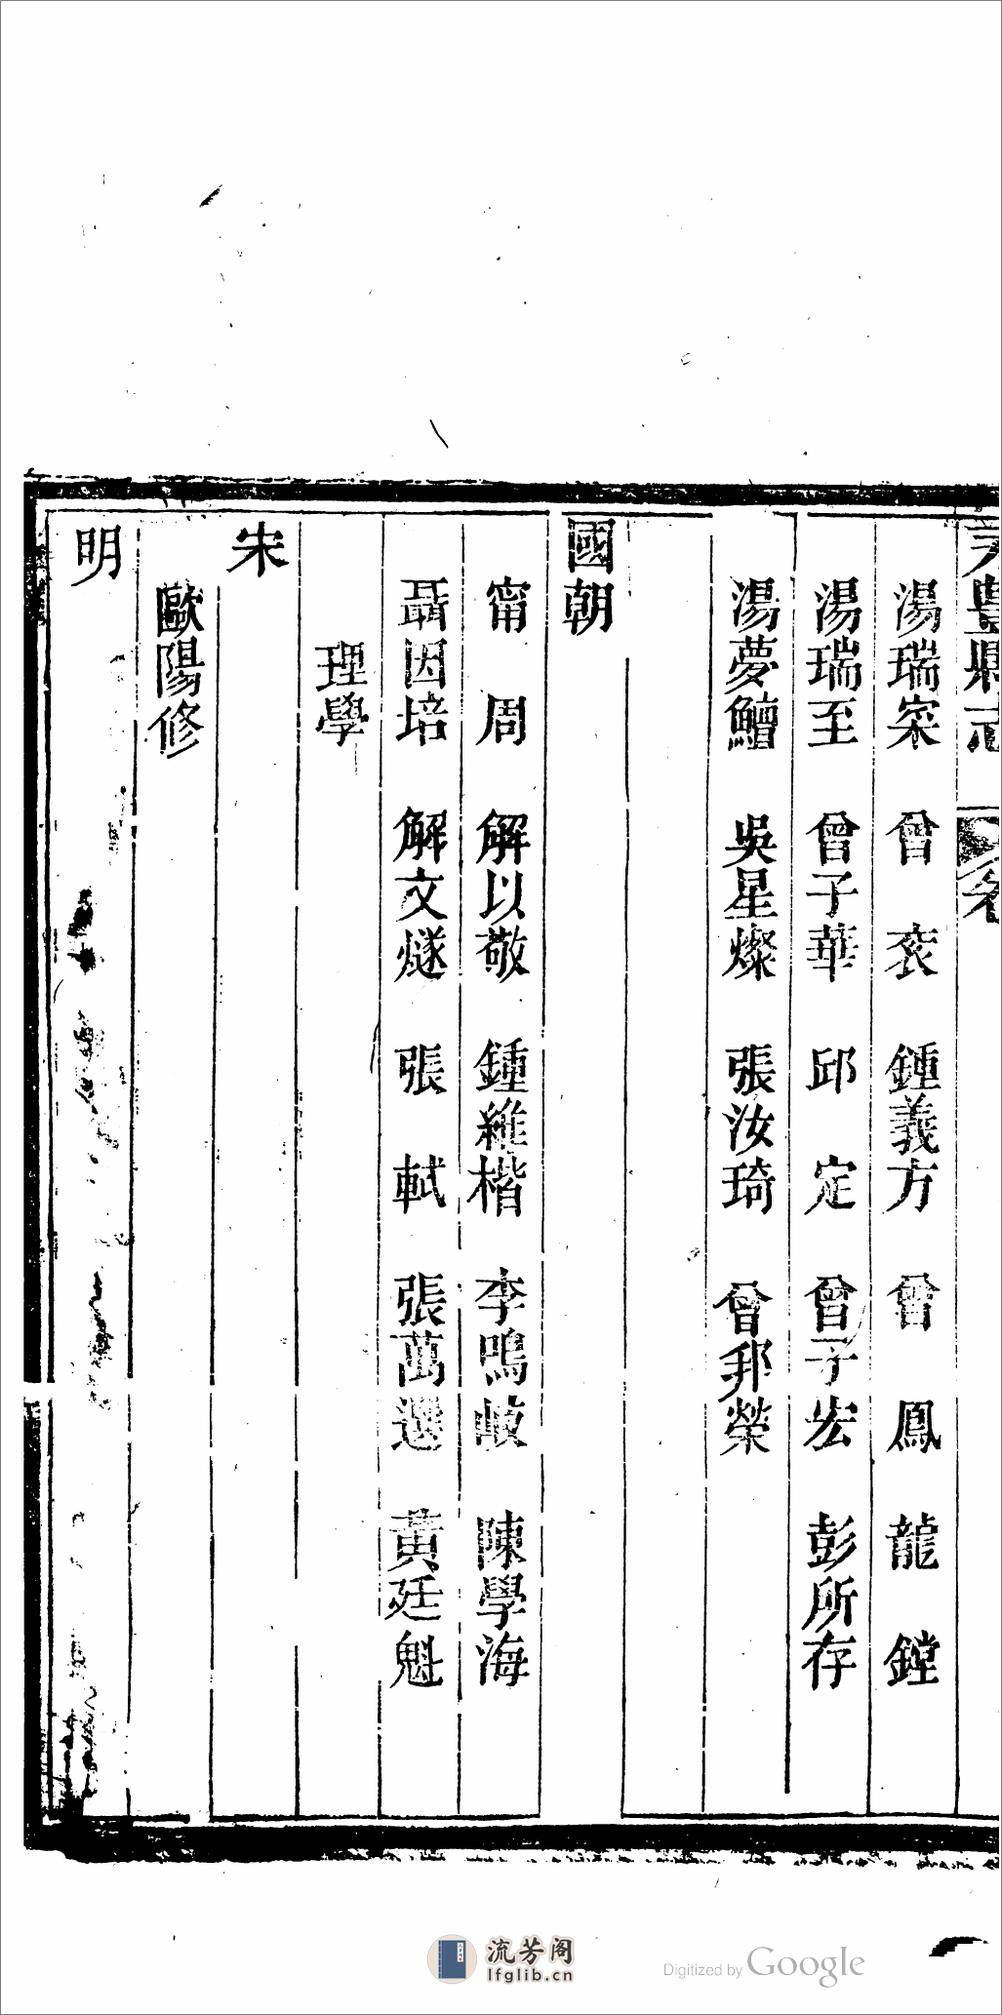 永豐縣志 卷
湯瑞寀 曾衮 鍾義方 曾鳳 龍鏜
湯瑞至 曾子華 邱定 曾子宏 彭所存
湯夢鱣 吳星燦 張汝琦 曾邦榮
國朝
甯周 解以敬 鍾維楷 李鳴岐 陳學海
聶因培 解文燧 張軾 張萬選 黃廷魁
理學
宋
歐陽修
明
流芳阁
lfglib.cn
Digitized by Google